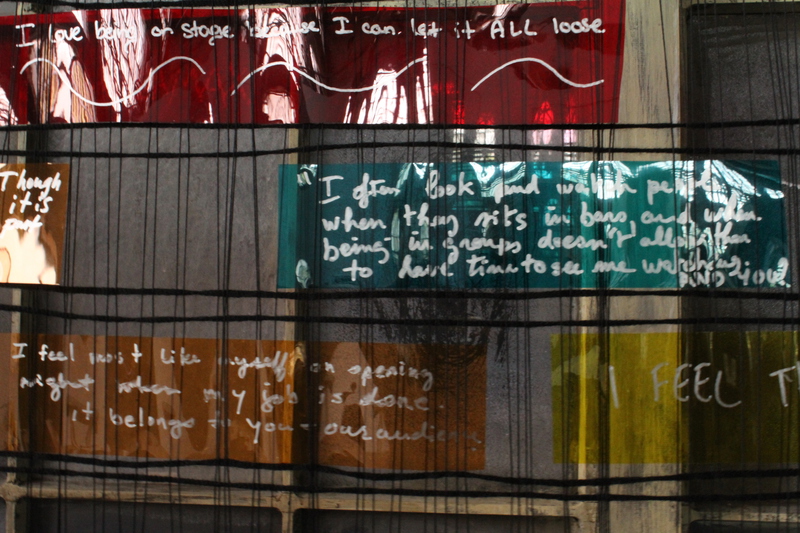 I love being on stage because I can let it ALL loose
Though
it is
not
I often look and watch people
when they sits in bars and when
being in groups doesn't allow them
to have time to see me watching
AND YOU?
I feel most like myself on opening
night when my job is done.
it belongs to you - our audience
I FEEL